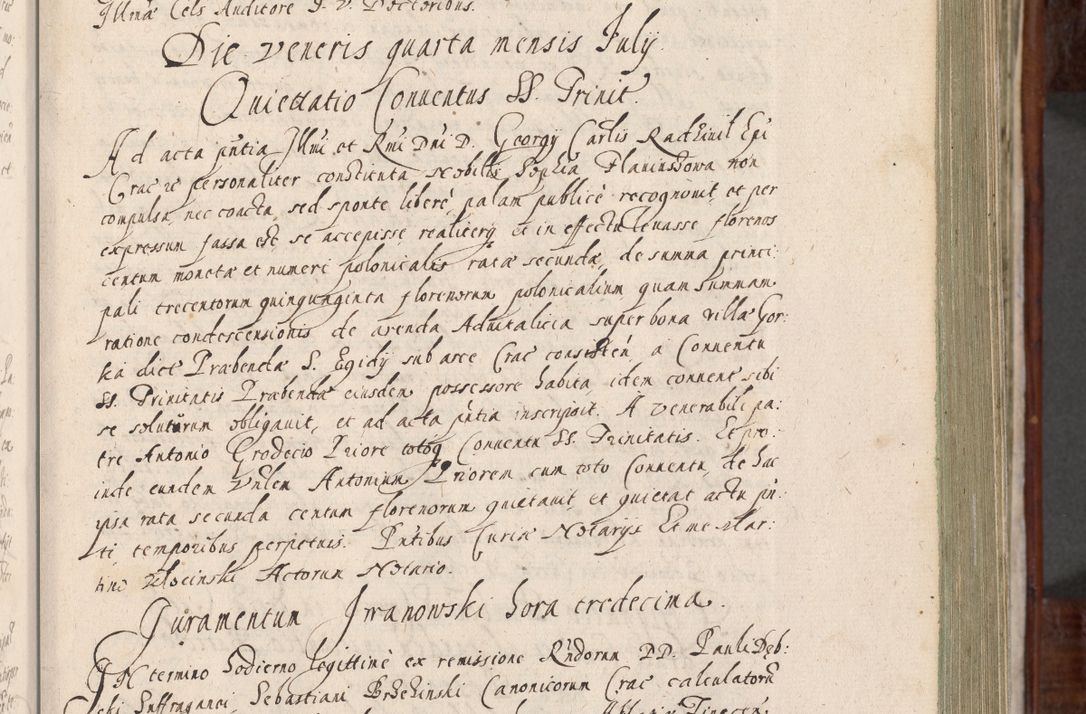 Illmæ Cels Auditore I. V. Doctoribus.
Die Veneris quarta mensis July
Quietatio Conventus SS. Trinit.
Ad acta pñtia Illmi et Rmi Dñi D. Georgy Carlis Radzivil Epi
Crac &c personaliter constituta Nobilis Sophia Planinsdowa non
compulsa, nec coacta, sed sponte liberè, palam publicè recognovit, et per
expressum fassa est, se accepisse, realiterq et in effectu levasse florenos
centum monetæ et numeri polonicalis ratæ secundæ, de summa princi:
pali trecentorum quinquaginta florenorum polonicalium quam summam
ratione condescensionis de arenda Advitalicia super bona villæ Gor:
ka dict Præbendæ S. Egidij sub arce Crac consisteñ, a Conventu
SS. Trinitatis Præbendæ eiusdem possessore habita idem convent sibi
se soluturum obligavit, et ad acta pñtia inscripsit. A venerabile pa:
tre Antonio Grodecio Priore totoq Conventu SS. Trinitatis. Et pro:
inde eundem Vnlem Antonium Priorem cum toto Conventu, de hac
ipsa rata secunda centum florenorum quietavit, et quietat actu pñ:
ti temporibus perpetuis. Pñtibus Curiæ Notarys Et me Mar:
tino Actorum Notario.
Juramentum Jwanowski hora tredecima.
In termino hodierno legittimè ex remissione Rndorum DD. Pauli Dęb:
ski Suffraganei, Sebastiani Brzezinski Canonicorum Crac calculatorū